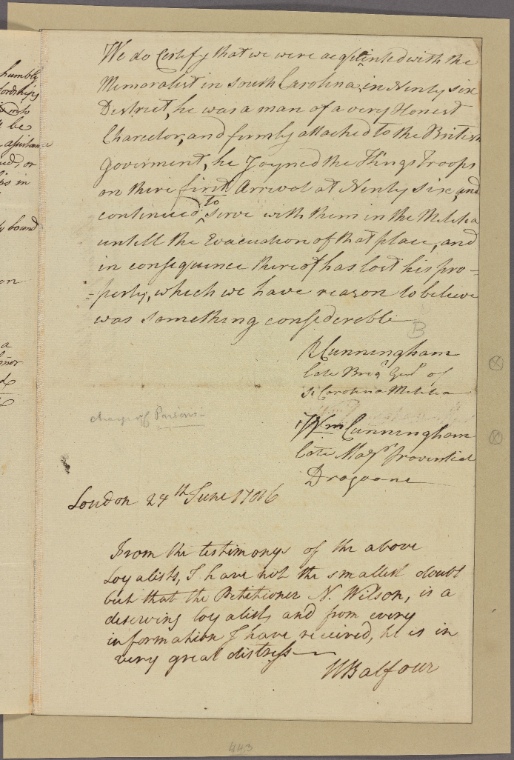 humbly
Lordships
be
or
in
bound
on
a
We do Certify that we were acqtinted with the
Memoralist in South Carolina, in Ninty six
District, he was a man of a very Honest
Charector, and firmly attached to the British
Goverment, he Joyned the Kings Troops
on there first Arrivol at Ninty six, and
continued to Serve with them in the Melitia
untill the Evacuation of that place, and
in consequence there of has lost his pro-
-perty, which we have reason to believe
was something considerable
B
R Cunningham
late Brigr Genl of
So Carolina Melitia
Wm Cunningham
late Majr Provential
Dragoons
charge of Parsons
London 24th June 1786
From the testimonys of the above
Loyalists, I have not the smallest doubt
but that the Petitioner N. Wilson, is a
deserving loyalist and from every
information I have received, he is in
very great distress
NBalfour
443